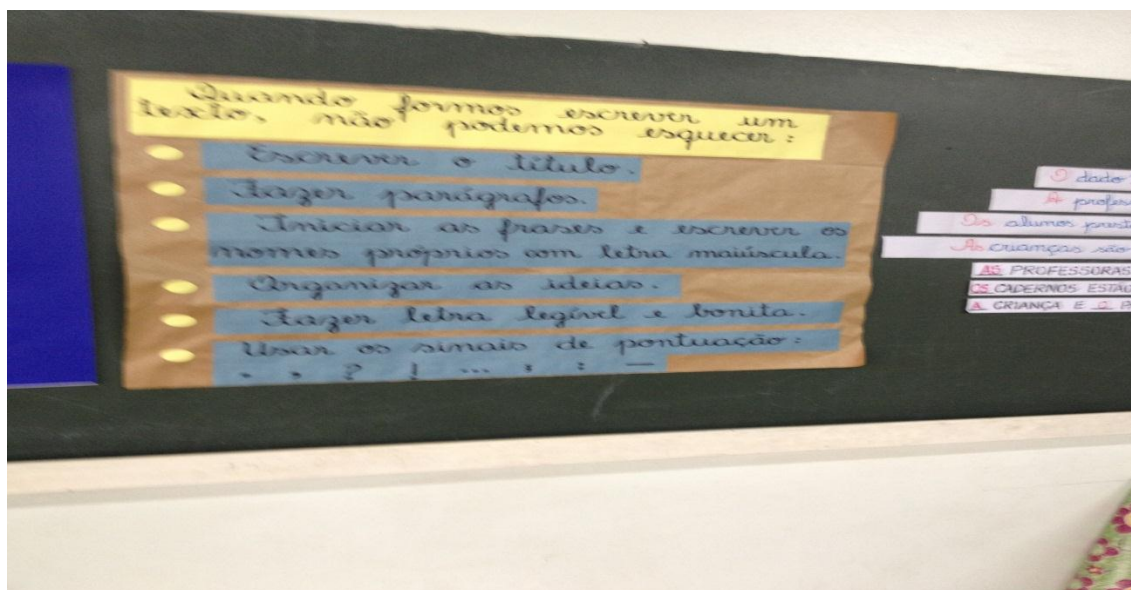 Quando formos escrever um
texto, não podemos esquecer:
Escrever o título.
Fazer parágrafos.
Iniciar as frases e escrever os
nomes próprios com letra maiúscula.
Organizar as ideias.
Fazer letra legível e bonita.
Usar os sinais de pontuação:
. , ? ! ... ; : —
O dado
A
Os alunos
As crianças são
AS PROFESSORAS
OS CADERNOS
A CRIANÇA E O